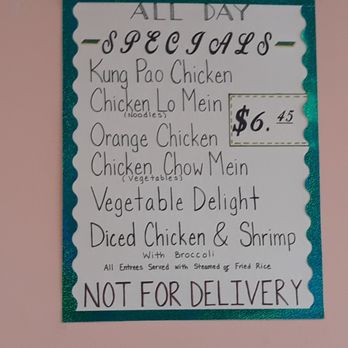 ALL DAY
-SPECIALS-
Kung Pao Chicken
Chicken Lo Mein
(Noodles)
$6.45
Orange Chicken
Chicken Chow Mein
(Vegetables)
Vegetable Delight
Diced Chicken & Shrimp
With Broccoli
All Entrees Served with Steamed of Fried Rice
NOT FOR DELIVERY